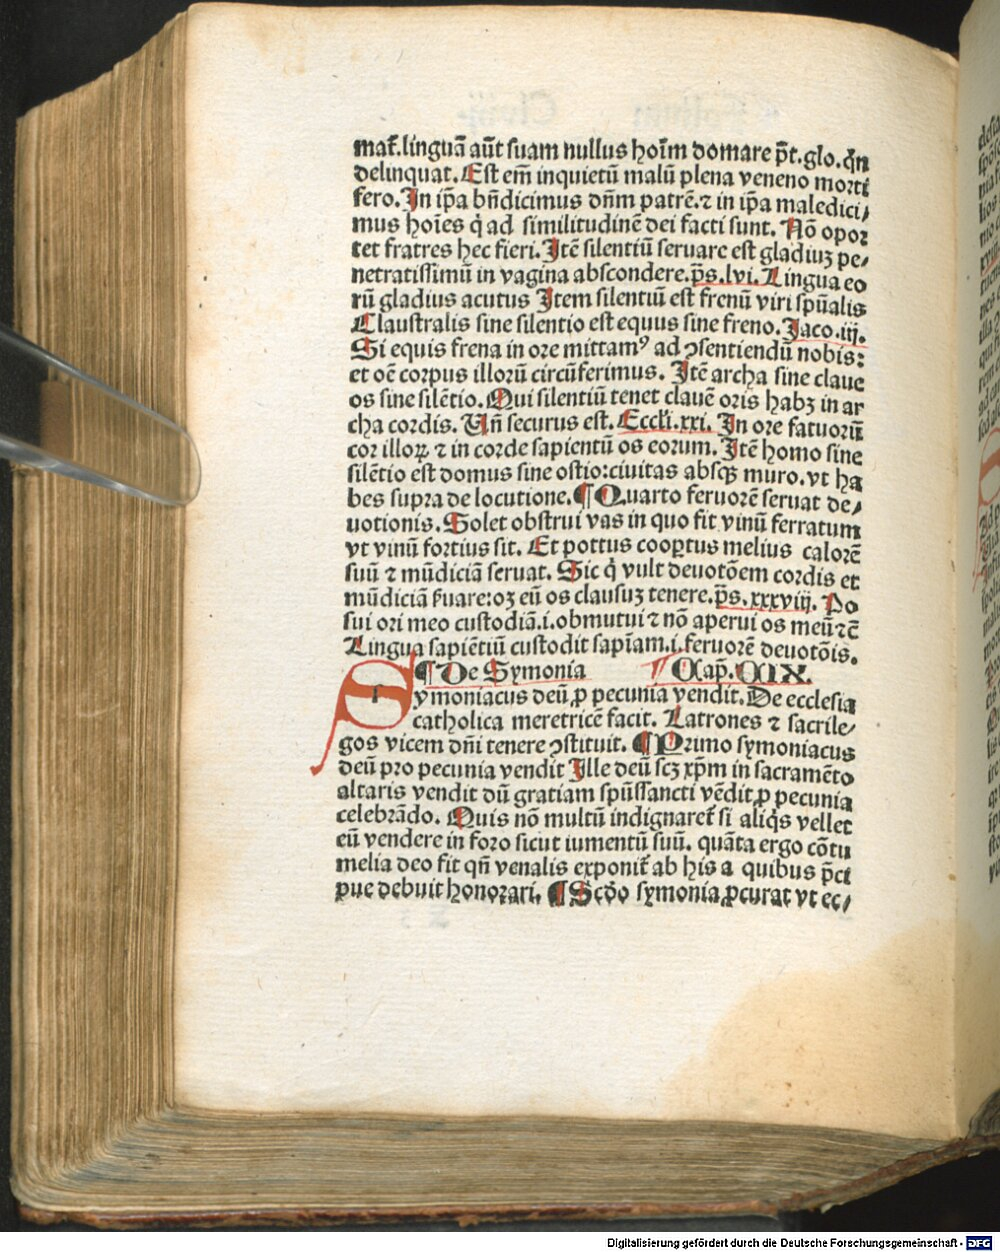 mat̃.linguā aūt suam nullus hoīm domare p̄t.glo.q̄n
delinquat.Est em̄ inquietū malū plena veneno morti
fero.In ip̄a bn̄dicimus dn̄m patrē.⁊ in ip̄a maledici/
mus hoīes q̇ ad similitudinē dei facti sunt. Nō opor
tet fratres hec fieri.Itē silentiū seruare est gladiuꝫ pe/
netratissimū in vagina abscondere.p̄s.lvi.Lingua eo
rū gladius acutus Item silentiū est frenū viri sp̄ualis
Claustralis sine silentio est equus sine freno.Jaco.iij.
Si equis frena in ore mittamꝰ ad ꝯsentiendū nobis:
et oē corpus illorū circūferimus. Itē archa sine claue
os sine silētio.Qui silentiū tenet clauē oris habꝫ in ar
cha cordis. Un̄ securus est. Eccl̄i.xxi. In ore fatuorū
cor illoꝝ ⁊ in corde sapientū os eorum.Itē homo sine
silētio est domus sine ostio:ciuitas absqꝫ muro.vt ha
bes supra de locutione.¶Quarto feruorē seruat de/
uotionis.Solet obstrui vas in quo fit vinū ferratum
vt vinū fortius sit. Et pottus cooꝑtus melius calorē
suū ⁊ mūdiciā seruat. Sic q̇ vult deuotōem cordis et
mūdiciā s̄uare:oꝫ eū os clausuꝫ tenere.p̄s.xxxviij. Po
sui ori meo custodiā.i.obmutui ⁊ nō aperui os meū ⁊c̄
Lingua sapiētiū custodit sapīam.i.feruorē deuotōis.
¶De Symonia Cap. CIX.
Symoniacus deū ꝓ pecunia vendit.De ecclesia
catholica meretricē facit. Latrones ⁊ sacrile/
gos vicem dn̄i tenere ꝯstituit. ¶Primo symoniacus
deū pro pecunia vendit Ille deū scꝫ xp̄m in sacramēto
altaris vendit dū gratiam sp̄ūssancti vēdit ꝓ pecunia
celebrādo. Quis nō multū indignaret̃ si aliq̇s vellet
eū vendere in foro sicut iumentū suū. quāta ergo cōtu
melia deo fit qn̄ venalis exponit̃ ab his a quibus p̄ci
pue debuit honorari. ¶Scd̄o symonia ꝓcurat vt ec/
Digitalisierung gefördert durch die Deutsche Forschungsgemeinschaft - DFG